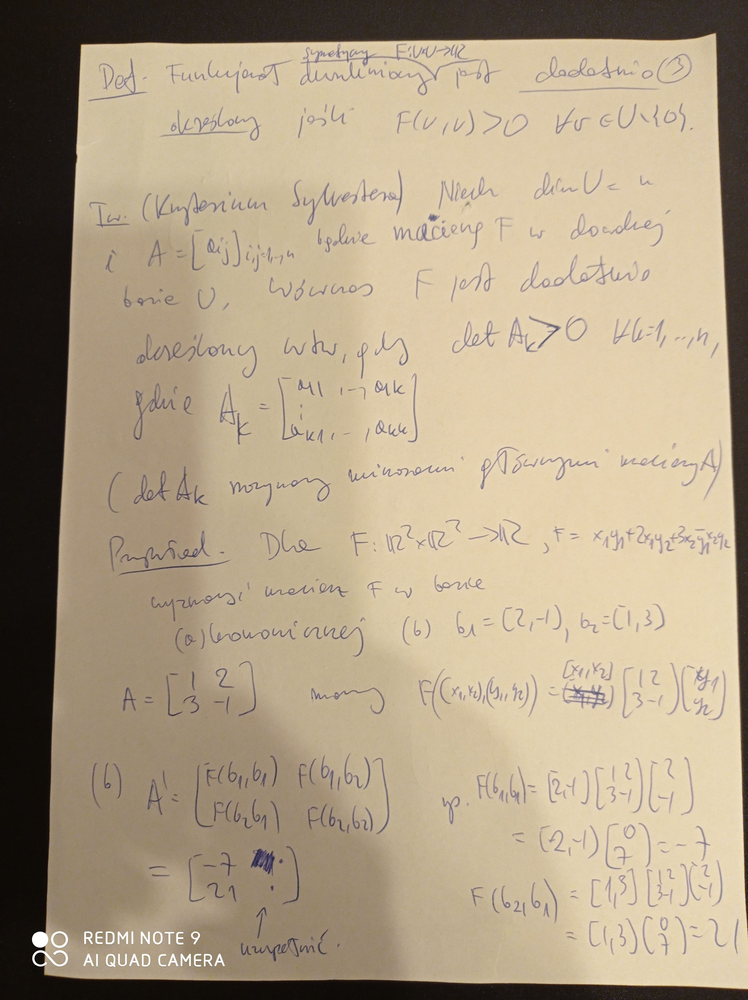 symetryczny F:U×U→ℝ
Def. Funkcjonał dwuliniowy jest dodatnio ③
określony jeśli F(v,v)>0 ∀v∈U\{0}.
Tw. (Kryterium Sylvestera) Niech dim U = n
i A = [aij]i,j=1,..,n będzie macierzą F w dowolnej
bazie U, wówczas F jest dodatnio
określony wtw, gdy det Ak > 0 ∀k=1,..,n,
gdzie Ak = [a11, .., a1k
⋮
ak1, .., akk]
(det Ak nazywamy minorami głównymi macierzy A)
Przykład. Dla F: ℝ²×ℝ² → ℝ, F = x1y1+2x1y2+3x2y1-x2y2
wyznaczyć macierz F w bazie
(a) kanonicznej (b) b1=(2,-1), b2=(1,3)
A = [1 2
3 -1] mamy F((x1,x2),(y1,y2)) = [x1,x2] [1 2
3 -1] [y1
y2]
(b) A' = [F(b1,b1) F(b1,b2)
F(b2,b1) F(b2,b2)]
np. F(b1,b1) = [2,-1] [1 2
3 -1] [2
-1]
= (-2,-1) [0
7] = -7
= [-7 .
21 .]
↑
uzupełnić.
F(b2,b1) = [1,3] [1 2
3 -1] [2
-1]
= [1,3] (0
7) = 21
REDMI NOTE 9
AI QUAD CAMERA